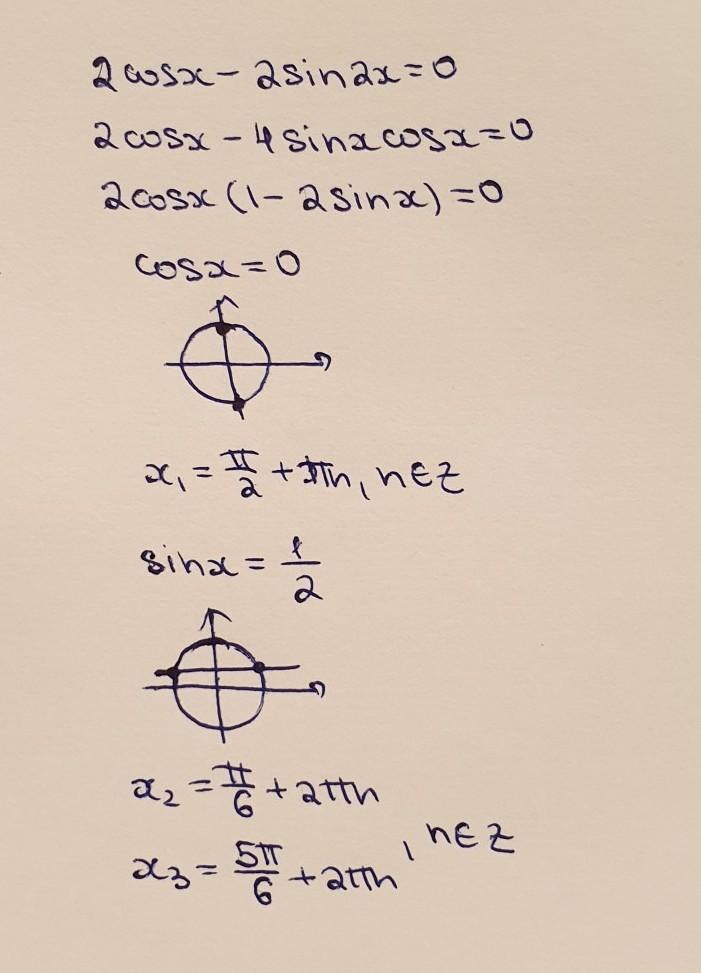 2cosx - 2sin2x = 0
2cosx - 4sinxcosx = 0
2cosx (1 - 2sinx) = 0
cosx = 0
x₁ = π/2 + πn, n∈Z
sinx = 1/2
x₂ = π/6 + 2πn
x₃ = 5π/6 + 2πn, n∈Z